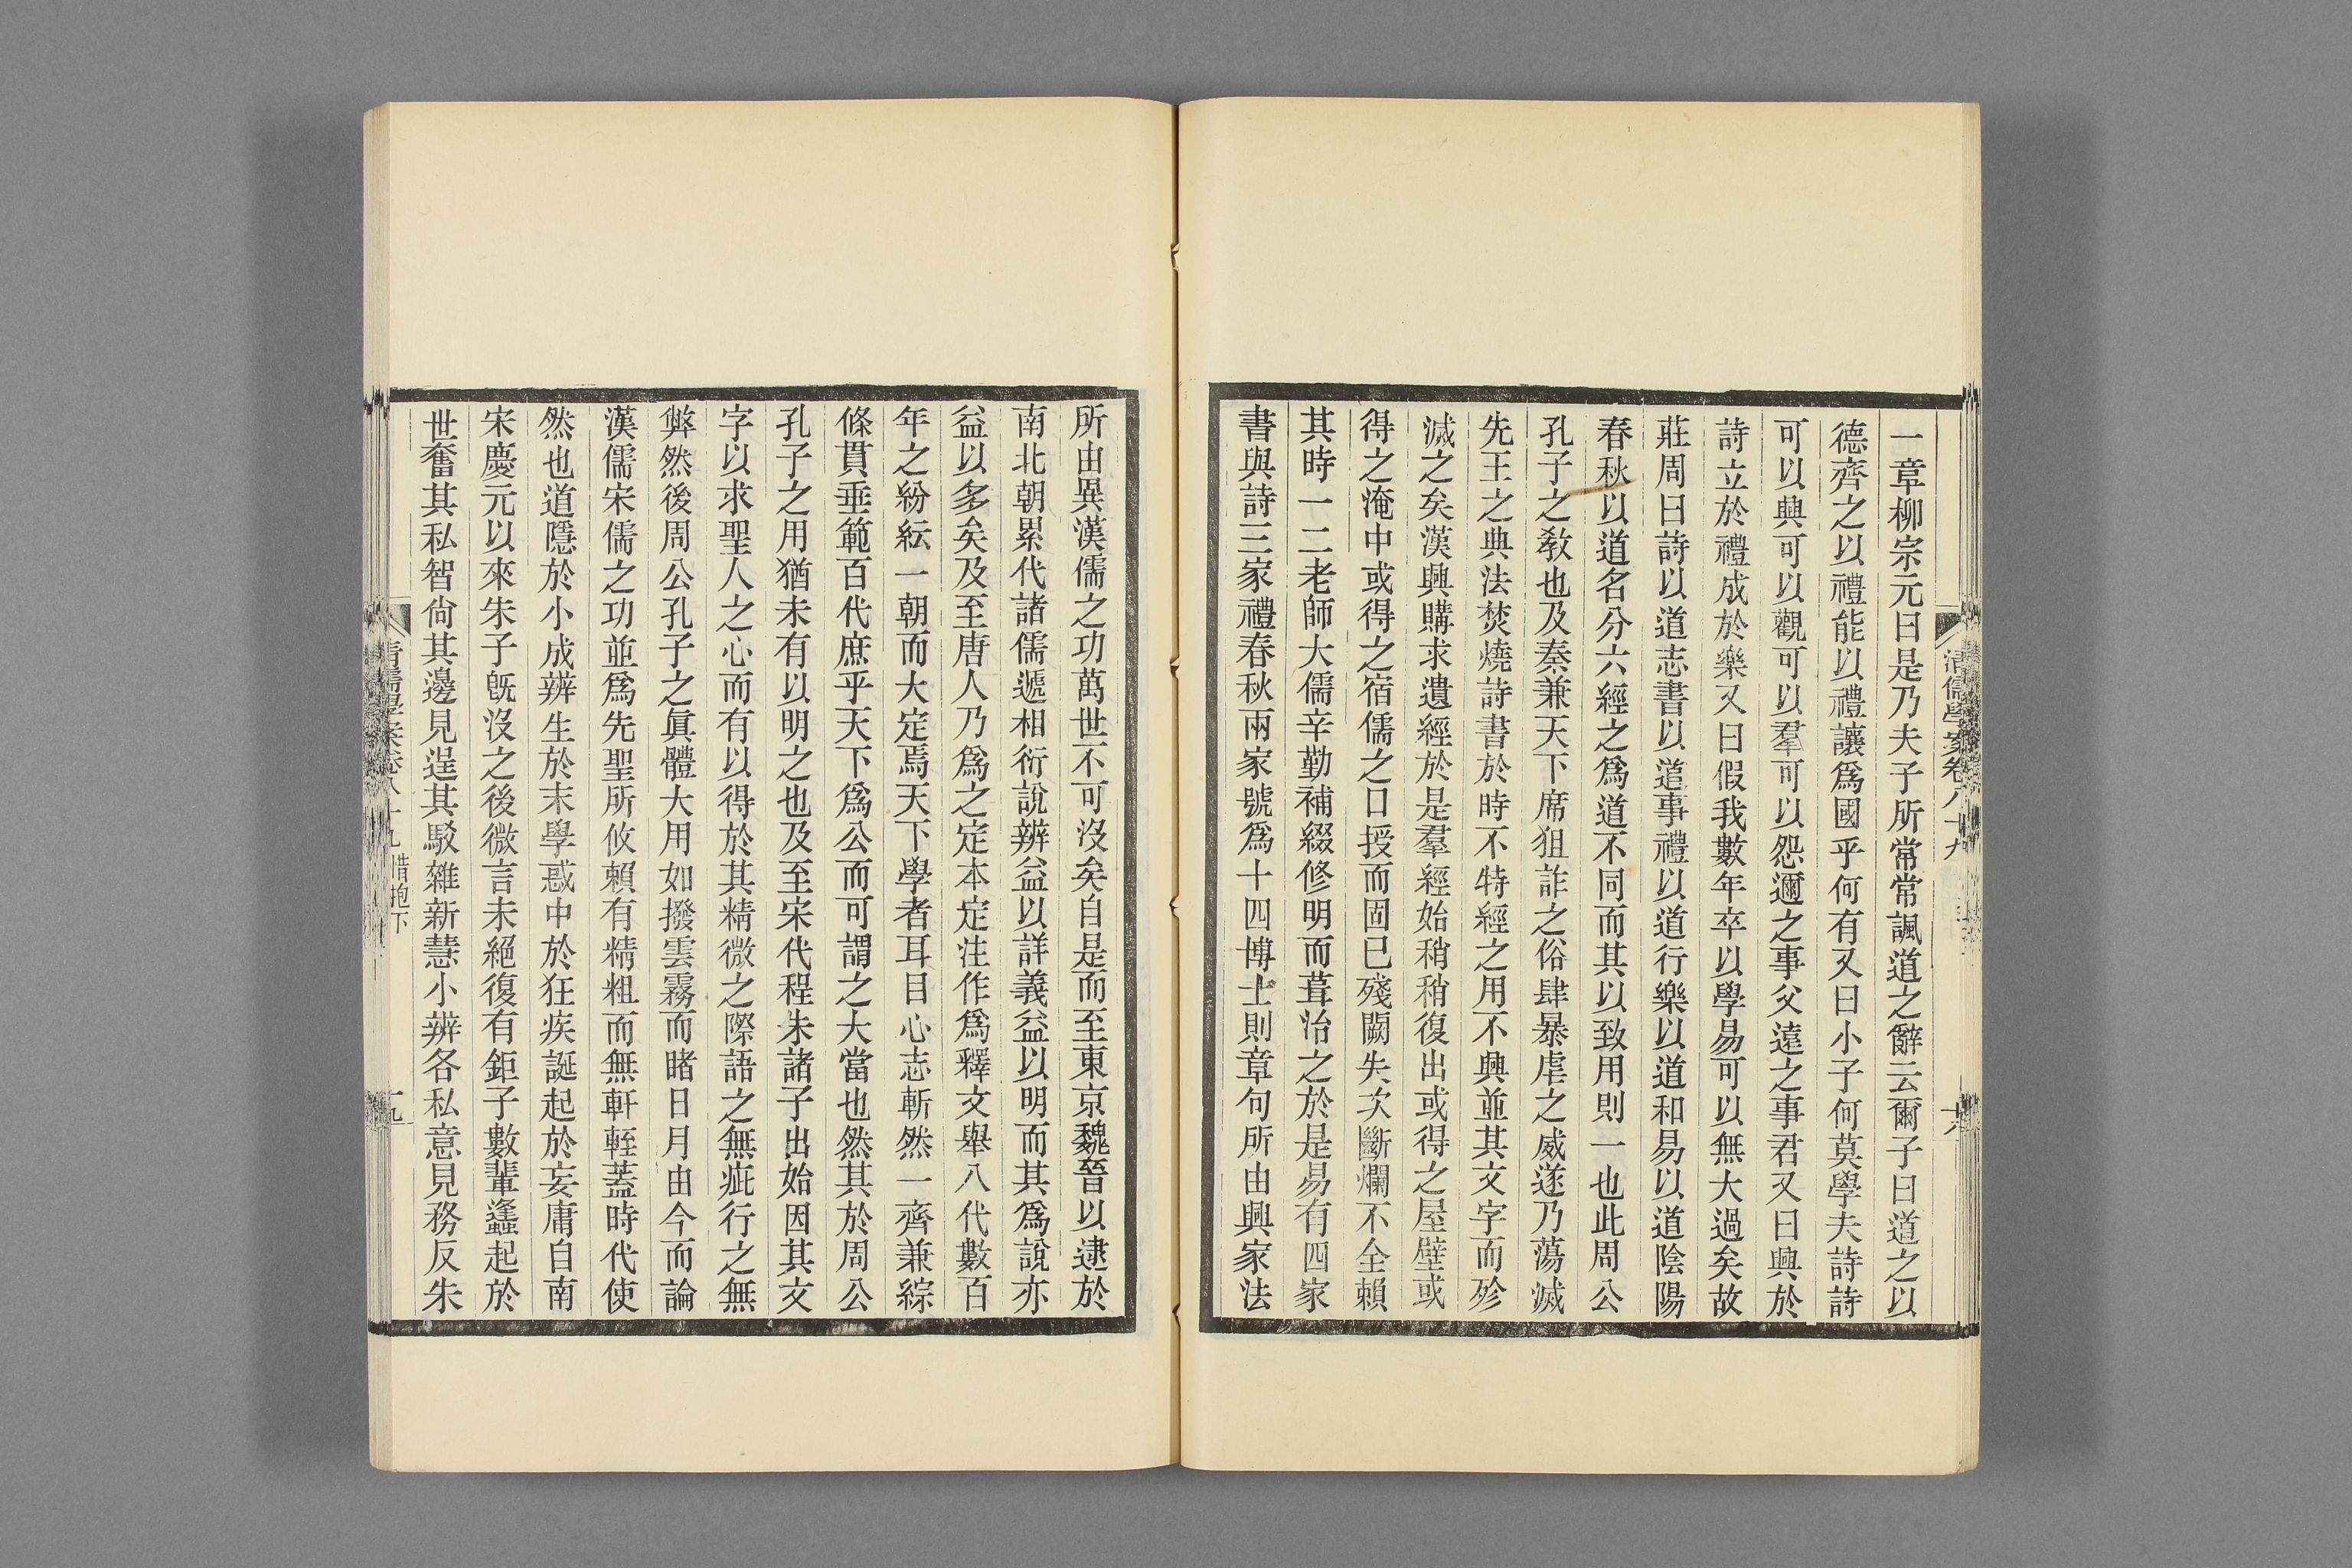 清儒學案卷八十九
一章柳宗元曰是乃夫子所常常諷道之辭云爾子曰道之以
德齊之以禮能以禮讓爲國乎何有又曰小子何莫學夫詩詩
可以興可以觀可以羣可以怨邇之事父遠之事君又曰興於
詩立於禮成於樂又曰假我數年卒以學易可以無大過矣故
莊周曰詩以道志書以道事禮以道行樂以道和易以道陰陽
春秋以道名分六經之爲道不同而其以致用則一也此周公
孔子之敎也及秦兼天下席狙詐之俗肆暴虐之威遂乃蕩滅
先王之典法焚燒詩書於時不特經之用不興並其文字而殄
滅之矣漢興購求遺經於是羣經始稍稍復出或得之屋壁或
得之淹中或得之宿儒之口授而固已殘闕失次斷爛不全賴
其時一二老師大儒辛勤補綴修明而葺治之於是易有四家
書與詩三家禮春秋兩家號爲十四博士則章句所由興家法
所由異漢儒之功萬世不可沒矣自是而至東京魏晉以逮於
南北朝累代諸儒遞相衍說辨益以詳義益以明而其爲說亦
益以多矣及至唐人乃爲之定本定注作爲釋文舉八代數百
年之紛紜一朝而大定焉天下學者耳目心志斬然一齊兼綜
條貫垂範百代庶乎天下爲公而可謂之大當也然其於周公
孔子之用猶未有以明之也及至宋代程朱諸子出始因其文
字以求聖人之心而有以得於其精微之際語之無疵行之無
弊然後周公孔子之眞體大用如撥雲霧而睹日月由今而論
漢儒宋儒之功並爲先聖所攸賴有精粗而無軒輊蓋時代使
然也道隱於小成辨生於末學惑中於狂疾誕起於妄庸自南
宋慶元以來朱子旣沒之後微言未絕復有鉅子數輩蠭起於
世奮其私智尙其邊見逞其駁雜新慧小辨各私意見務反朱
清儒學案卷八十九 惜抱下